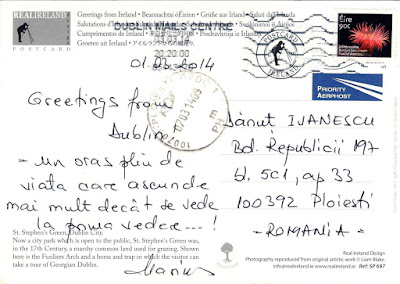 REALIRELAND
POSTCARD
Greetings from Ireland • Beannachtaí ó Éirinn • Grüße aus Irland
DUBLIN MAILS CENTRE
20:20:00
POSTCARD
IRELAND
Éire
90c
PRIORITY
AERPHOST
01.03.2014
Greetings from
Dublin
- un oras plin de
viata care ascunde
mai mult decât se vede
la prima vedere---!
Marius
Dănut IVANESCU
Bd. Republicii 197
bl. 5C1, ap 33
100392 PLOIESTI
-ROMANIA-
St. Stephen's Green, Dublin City.
Now a city park which is open to the public, St. Stephen's Green was,
in the 17th Century, a marshy common land used for grazing. Shown
here is the Fusiliers Arch and a horse and trap in which the visitor can
take a tour of Georgian Dublin.
Real Ireland Design
Photography reproduced from original artistic work © Liam Blake.
info@realireland.ie www.realireland.ie Ref: SP 697